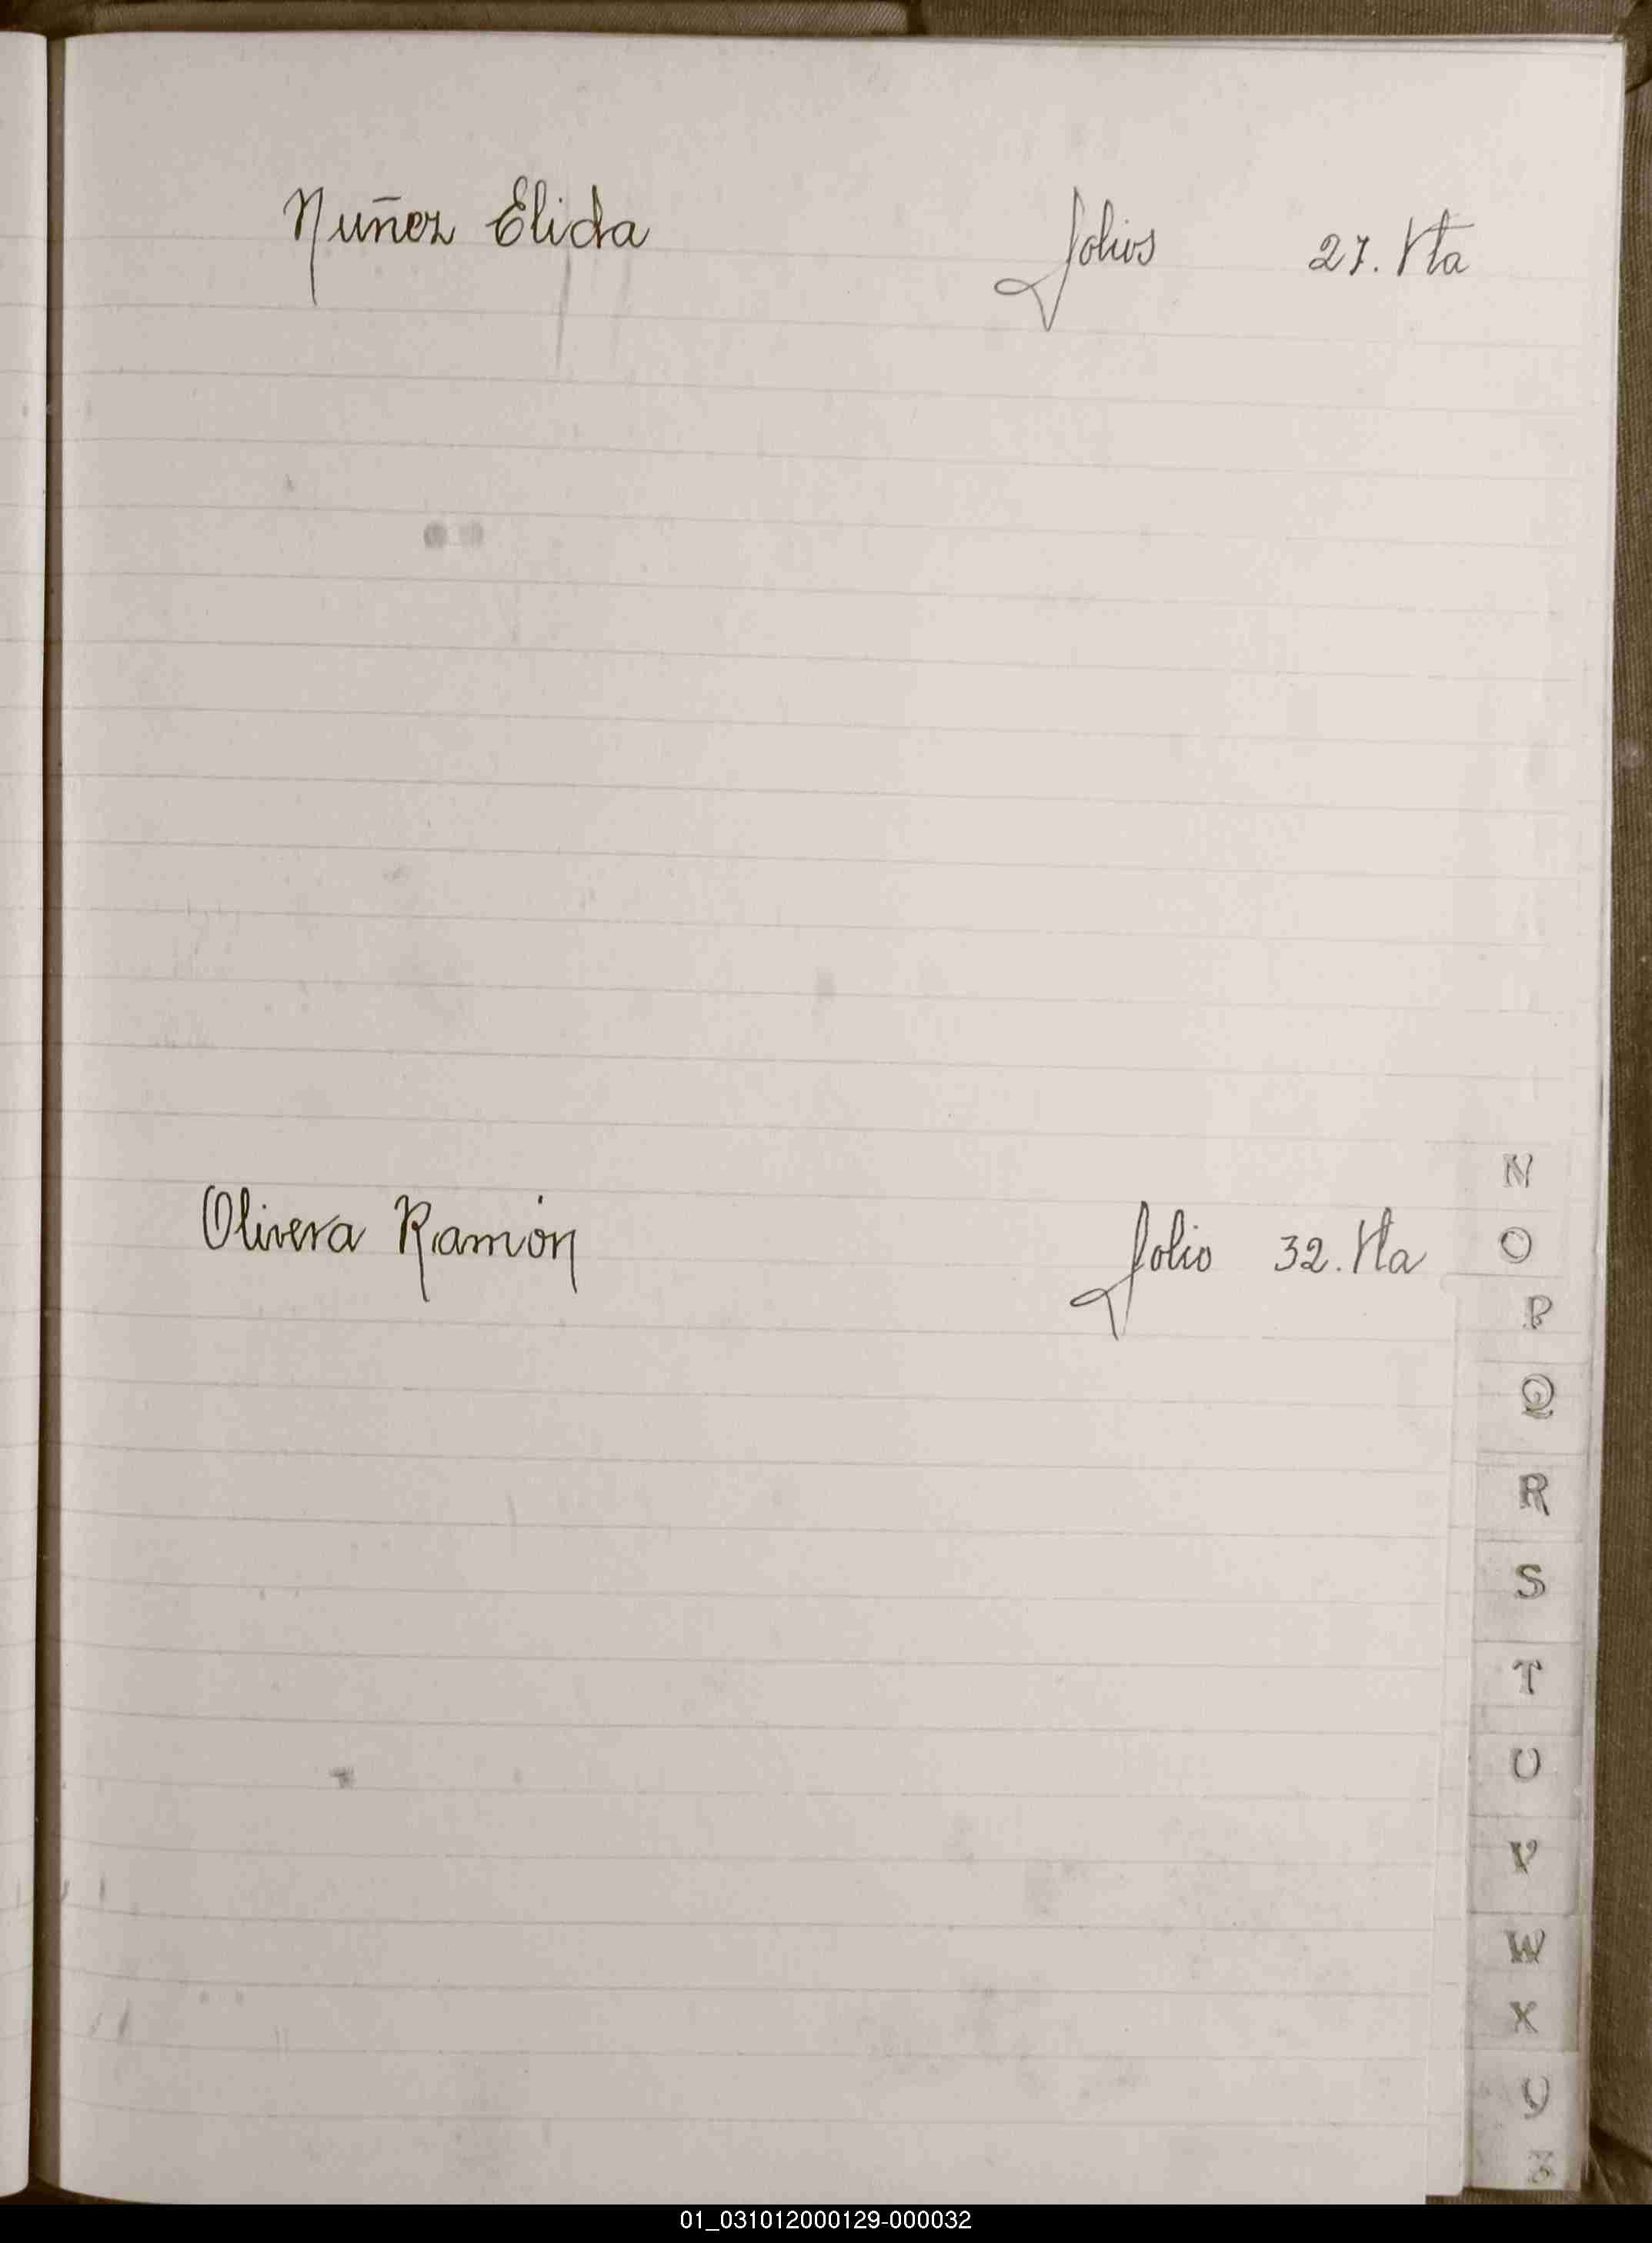 Nuñez Elida folios 27. Vta
Olivera Ramón folio 32. Vta
N
O
P
Q
R
S
T
U
V
W
X
Y
Z
01_031012000129-000032